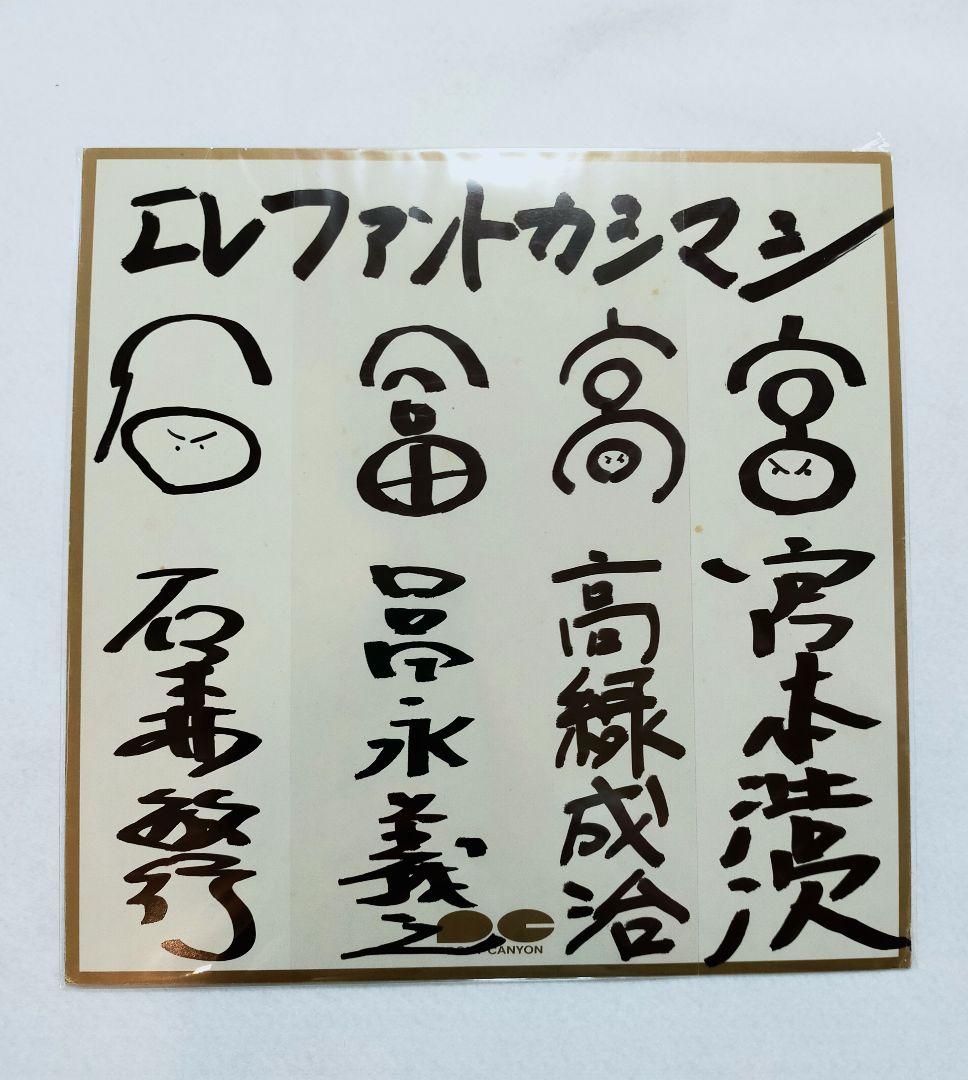 エレファントカシマシ
宮
高
冨
石
宮本浩次
高緑成治
冨永義之
石森敏行
PC
CANYON